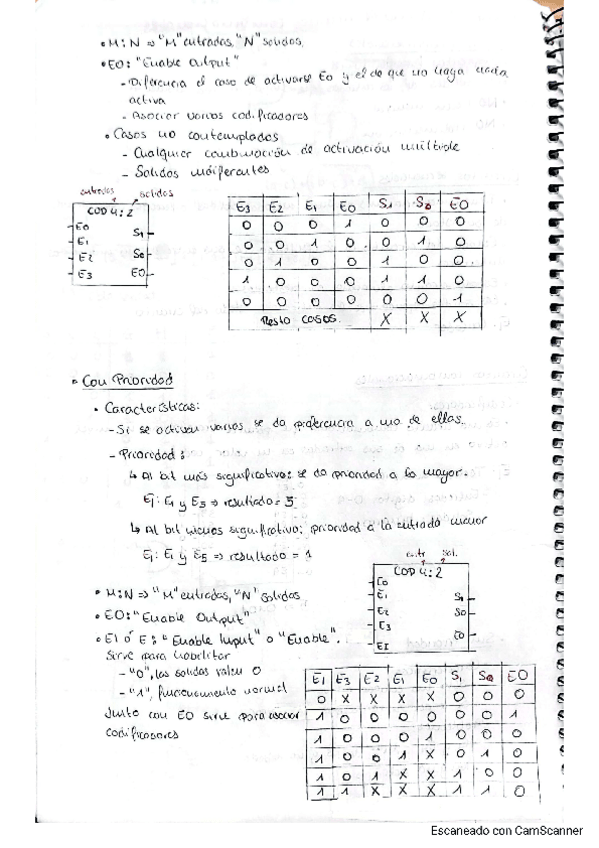 • M:N => "M" entradas, "N" salidas.
• EO: "Enable Output"
- Diferencia el caso de activarse E0 y el de que no haya
activa
- Asociar varios codificadores
• Casos no contemplados
- Cualquier combinación de activación múltiple
- Salidas indiferentes
entradas salidas
COD 4:2
E0
E1 S1
E2 S0
E3 EO
E3 E2 E1 E0 S1 S0 EO
0 0 0 1 0 0 0
0 0 1 0 0 1 0
0 1 0 0 1 0 0
1 0 0 0 1 1 0
0 0 0 0 0 0 1
Resto casos. X X X
• Con Prioridad
• Características:
- Si se activan varios se da preferencia a uno de ellos.
- Prioridad:
↳ Al bit más significativo: se da prioridad a la mayor.
Ej: E1 y E3 => resultado = 3
↳ Al bit menos significativo: prioridad a la entrada menor
Ej: E1 y E5 => resultado = 1
entr sal.
COD 4:2
E0
E1 S1
E2 S0
E3
EI EO
• M:N => "M" entradas, "N" salidas
• EO: "Enable Output"
• EI ó E: "Enable Input" o "Enable".
Sirve para habilitar
- "0", las salidas valen 0
- "1", funcionamiento normal
Junto con EO sirve para asociar
codificadores
EI E3 E2 E1 E0 S1 S0 EO
0 X X X X 0 0 0
1 0 0 0 0 0 0 1
1 0 0 0 1 0 0 0
1 0 0 1 X 0 1 0
1 0 1 X X 1 0 0
1 1 X X X 1 1 0
Escaneado con CamScanner